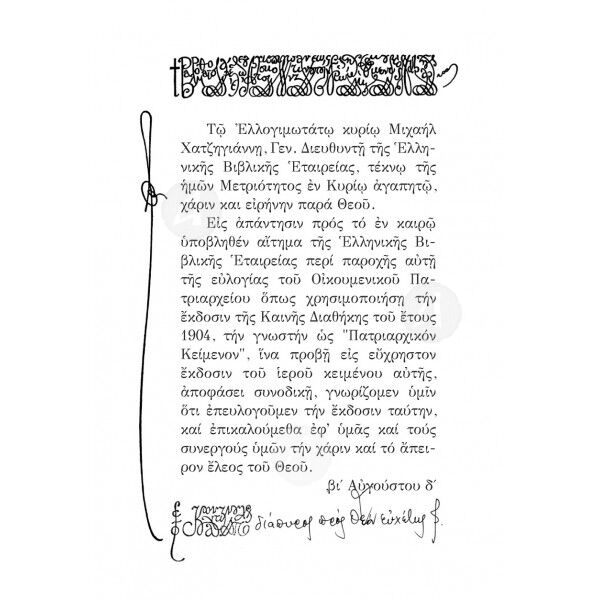 Τῷ Ἐλλογιμωτάτῳ κυρίῳ Μιχαήλ
Χατζηγιάννη, Γεν. Διευθυντῇ τῆς Ἑλλη-
νικῆς Βιβλικῆς Ἑταιρείας, τέκνῳ τῆς
ἡμῶν Μετριότητος ἐν Κυρίῳ ἀγαπητῷ,
χάριν και εἰρήνην παρά Θεοῦ.
Εἰς ἀπάντησιν πρός τό ἐν καιρῷ
ὑποβληθέν αἴτημα τῆς Ἑλληνικῆς Βι-
βλικῆς Ἑταιρείας περί παροχῆς αὐτῇ
τῆς εὐλογίας τοῦ Οἰκουμενικοῦ Πα-
τριαρχείου ὅπως χρησιμοποιήσῃ τήν
ἔκδοσιν τῆς Καινῆς Διαθήκης τοῦ ἔτους
1904, τήν γνωστήν ὡς "Πατριαρχικόν
Κείμενον", ἵνα προβῇ εἰς εὔχρηστον
ἔκδοσιν τοῦ ἱεροῦ κειμένου αὐτῆς,
ἀποφάσει συνοδικῇ, γνωρίζομεν ὑμῖν
ὅτι ἐπευλογοῦμεν τήν ἔκδοσιν ταύτην,
καί ἐπικαλούμεθα ἐφ' ὑμᾶς καί τούς
συνεργούς ὑμῶν τήν χάριν καί τό ἄπει-
ρον ἔλεος τοῦ Θεοῦ.
βι' Αὐγούστου δ'
διάπυρος πρός Θεόν εὐχέτης